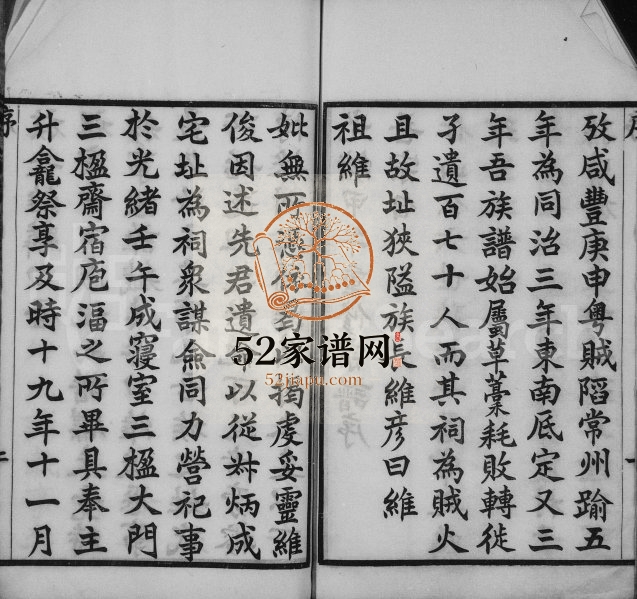 攷咸豐庚申粤賊陷常州踰五
年為同治三年東南厎定又三
年吾族譜始屬草藁耗敗轉徙
孑遺百七十人而其祠為賊火
且故址狹隘族長維彥曰維
祖維
妣無所
捣虔妥靈維
俊因述先君遺
以從叔炳成
宅址為祠衆謀僉同力營祀事
於光緒壬午成寢室三楹大門
三楹齋宿庖湢之所畢具奉主
升龕祭享及時十九年十一月
序
52家谱网
52jiapu.com